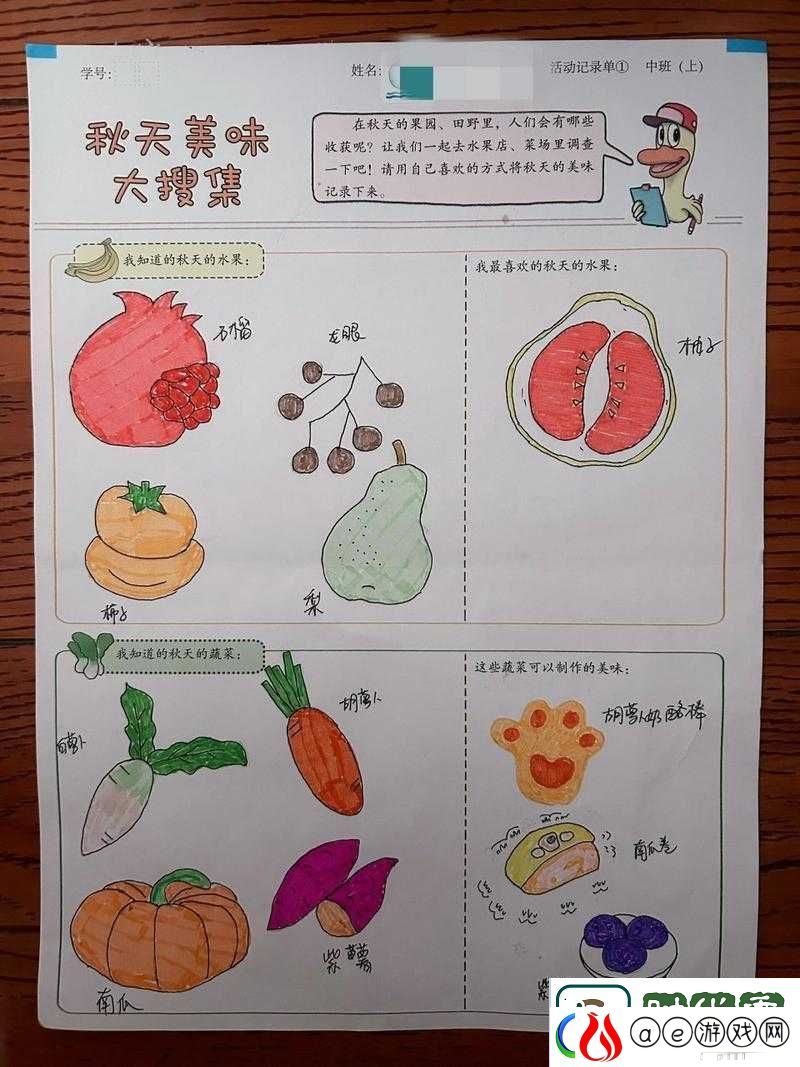 学号:
姓名:
活动记录单① 中班（上）
秋天美味
大搜集
在秋天的果园、田野里，人们会有哪些
收获呢？让我们一起去水果店、菜场里调查
一下吧！请用自己喜欢的方式将秋天的美味
记录下来。
我知道的秋天的水果：
石榴
龙眼
柿子
梨
我最喜欢的秋天的水果：
柚子
我知道的秋天的蔬菜：
白萝卜
胡萝卜
南瓜
紫薯
这些蔬菜可以制作的美味：
胡萝卜奶酪棒
南瓜卷
紫
ae游戏网